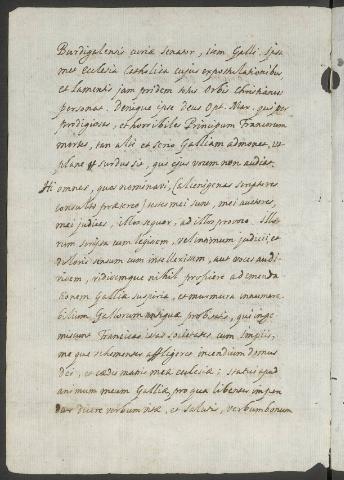 Burdigalensis curiæ senator, item Galli. Ipsa
met Ecclesia Catholica cujus expostulationibus,
et lamentis jam pridem totus Orbis Christianus
personat. Denique ipse Deus Opt. Max. qui per
prodigiosas, et horribiles Principum Francorum
mortes, tam alte et serio Galliam admonet, ut
plane sit surdus sit, qui ejus vocem non audiat.
Hi omnes, quos nominavi, (alienigenas scriptores
consulto prætereo) testes mei sunt, mei auctores,
mei judices, illos sequor, ad illos provoco. Illo
rum scripta cum legissem, vel intimum judicii, et
doloris sensum cum intellexissem, aut voces audi
vissem, vidissemque nihil proficere ad emenda
tionem Galliæ suspiria, et murmura innumera
bilium Gallorum antiquæ probitatis, qui inge
miscunt Francicas istas societates cum Impiis,
me quoque vehementer affligeret incendium domus
Dei, et cædes matris meæ ecclesiæ; statui apud
animum meum Galliæ, pro qua libenter impen
dar dicere verbum vitæ, et salutis, verbum bonum